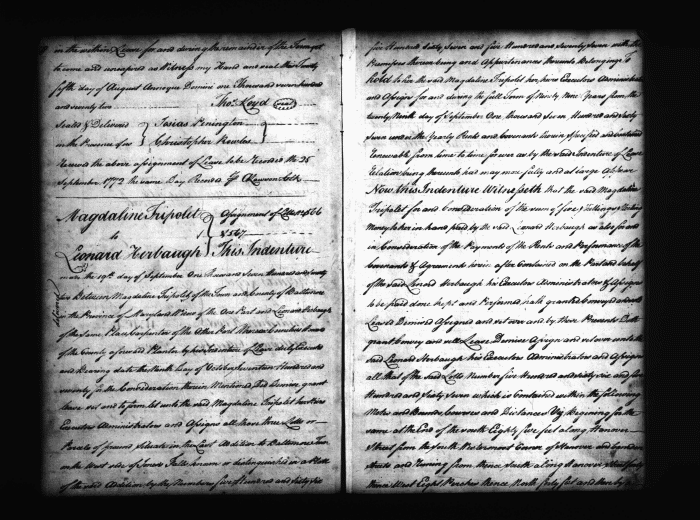 in the within Lease for and during the remainder of the Term yet
to come and unexpired as Witness my Hand and seal this Twenty
fifth day of August Annoque Domini one Thousand seven hundred
and seventy two Thos. Loyd (seal)
Sealed & Delivered } Josias Penington
in the Presence of us } Christopher Rowles
Received the above assignment of Lease to be Recorded the 25
September 1772 the same Day Recorded
Magdaline Tripolet } Assignment of Lotts No. 566
to } & 567
Leonard Herbaugh } This Indenture
made the 19th. day of September One Thousand Seven Hundred and seventy
two Between Magdaline Tripolet of the Town and County of Baltimore
in the Province of Maryland Widow of the One Part and Leonard Herbaugh
of the same Place Carpenter of the Other Part Whereas Cornelius Howard
of the County aforesaid Planter by his Indenture of Lease duly Executed
and bearing date the Day of October Seventeen Hundred and
seventy for the Consideration therein Mentioned Did demise, grant
and to farm let unto the said Magdaline Tripolet her
Executors Administrators and Assigns all those three Lotts or
Parcels of ground situate in the Last Addition to Baltimore Town
on the West side of Jones's Falls known or distinguished in a Plat
of the said Addition, by the Numbers five Hundred and sixty six
five Hundred sixty seven and five Hundred and seventy seven with the
Premises thereon being and Appurtenances thereunto Belonging To
hold to her the said Magdaline Tripolet her, heirs Executors Administrators
and Assigns for and during the full Term of Ninety Nine Years from the
twenty Ninth day of September One thousand and seven Hundred and sixty
seven under the Yearly Rents and Covenants therein specified and contained
renewable from time to time for ever as by the said Indenture of Lease
relation being thereunto had may more fully and at Large Appear
Now this Indenture Witnesseth that the said Magdaline
Tripolet for and Consideration of the sum of five shillings Sterling
Money to her in hand paid by the said Leonard Herbaugh as also for and
in Consideration of the Payment of the Rents and Performance of the
Covenants & Agreements herein after Contained on the Part and behalf
of the said Leonard Herbaugh his Executors Administrators & Assigns
to be paid done kept and Performed, hath granted Conveyed and sold
Leased Demised Assigned and set over and by these Presents Doth
grant Convey and sell Lease Demise Assign and set over unto the
said Leonard Herbaugh his Executors Administrators and Assigns
all that of the said Lotts Number five Hundred and sixty six and five
Hundred and Sixty Seven which is Contained within the following
Metes and Bounds, Courses and Distances Viz Begining for the
same at the End of the South Eighty five feet along Hanover
Street from the South Westermost Corner of Hanover and
Streets and Running from thence South along Hanover Street forty
thence West Eight Perches thence North forty feet and then by a